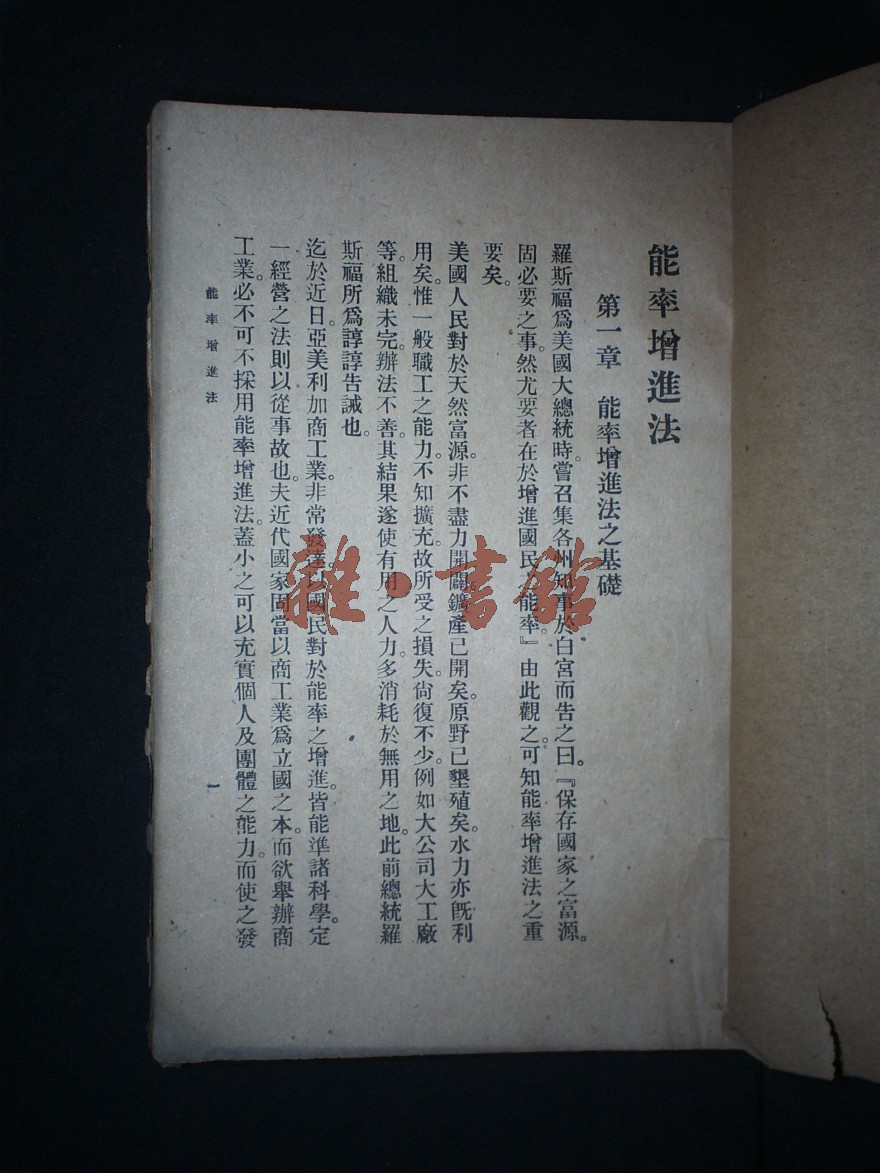 能率增進法
第一章　能率增進法之基礎
羅斯福爲美國大總統時。嘗召集各州知事於白宮而告之曰。『保存國家之富源。
固必要之事。然尤要者在於增進國民之能率。』由此觀之。可知能率增進法之重
要矣。
美國人民對於天然富源。非不盡力開闢。鑛產已開矣。原野已墾殖矣。水力亦既利
用矣。惟一般職工之能力。不知擴充。故所受之損失。尙復不少。例如大公司大工廠
等。組織未完。辦法不善。其結果遂使有用之人力。多消耗於無用之地。此前總統羅
斯福所爲諄諄告誡也。
迄於近日。亞美利加商工業。非常發達。以國民對於能率之增進。皆能準諸科學。定
一經營之法則以從事故也。夫近代國家。固當以商工業爲立國之本。而欲舉辦商
工業。必不可不採用能率增進法。蓋小之可以充實個人及團體之能力。而使之發
能率增進法
一
雜·書館